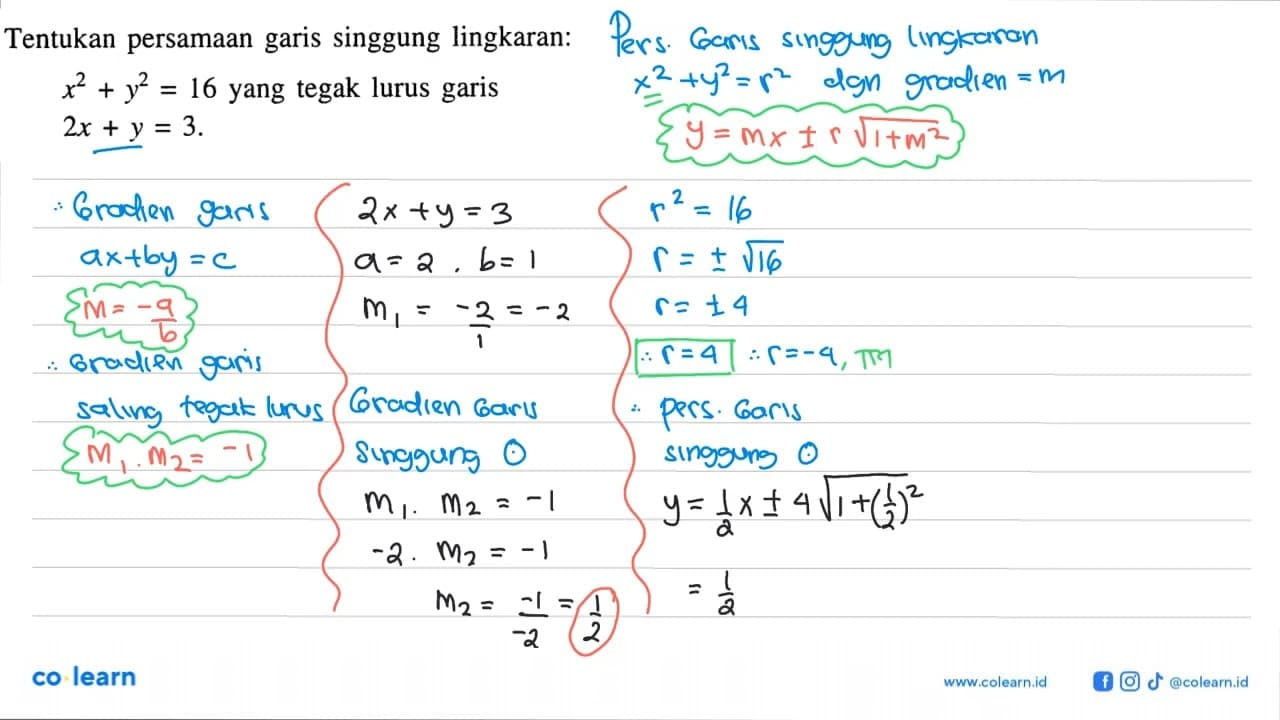 Tentukan persamaan garis singgung lingkaran:
x² + y² = 16 yang tegak lurus garis
2x + y = 3.
Pers. Garis singgung lingkaran
x² + y² = r² dgn gradien = m
y = mx ± r √(1+m²)
∴ Gradien garis
ax + by = c
m = -a/b
∴ Gradien garis
saling tegak lurus
m₁ . m₂ = -1
2x + y = 3
a = 2 , b = 1
m₁ = -2/1 = -2
Gradien Garis
Singgung ⊙
m₁ . m₂ = -1
-2 . m₂ = -1
m₂ = -1/-2 = 1/2
r² = 16
r = ± √16
r = ± 4
∴ r = 4 ∴ r = -4, TM
∴ Pers. Garis
singgung ⊙
y = 1/2 x ± 4 √(1+(1/2)²)
= 1/2
co learn
www.colearn.id
@colearn.id